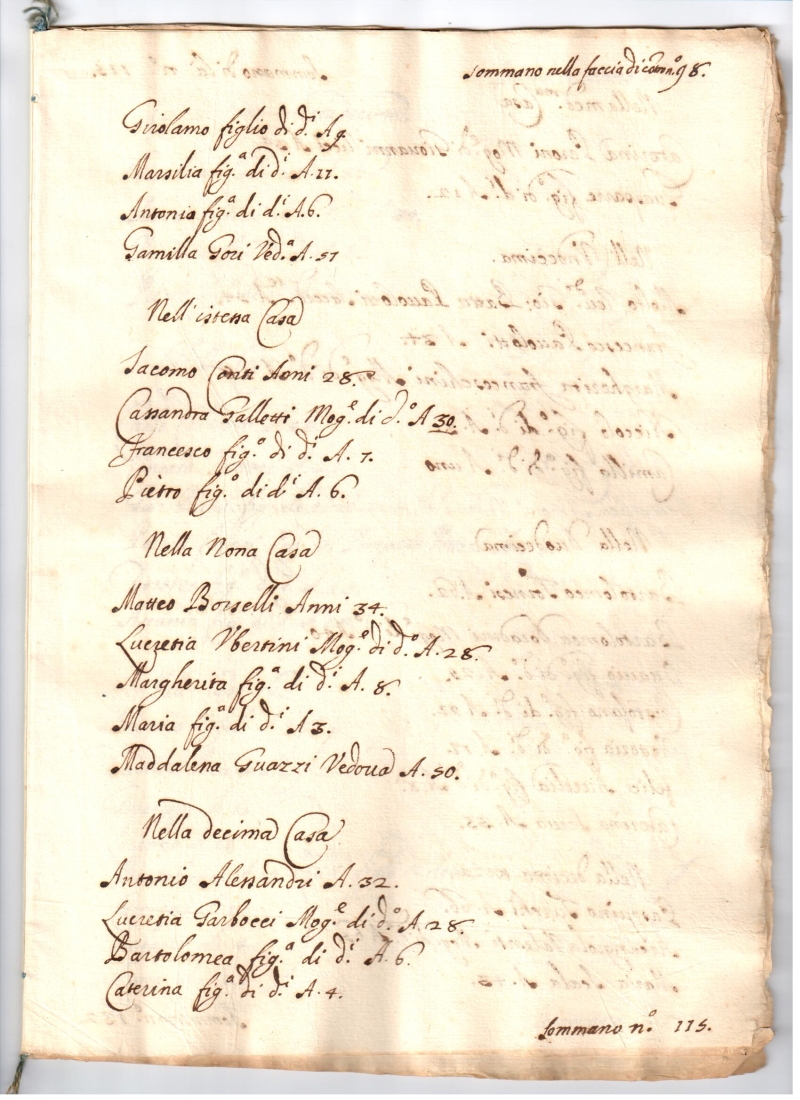 Sommano nella facciadicontro n.º 98.
Girolamo figlio di d.i A 9
Marsilia fig.a di d.i A. 11.
Antonia fig.a di d.i A. 6.
Camilla Gori Ved.a A. 57
Nell'istessa Casa
Iacomo Conti Anni 28.
Cassandra Galletti Mog.e di d.o A 30.
Francesco fig.o di d.i A. 7.
Pietro fig.o di d.i A. 6.
Nella Nona Casa
Matteo Borselli Anni 34.
Lucretia Vbertini Mog.e di d.o A. 28.
Margherita fig.a di d.i A. 8.
Maria fig.a di d.i A 3.
Maddalena Guazzi Vedoua A. 50.
Nella decima Casa
Antonio Alessandri A. 32.
Lucretia Garbocci Mog.e di d.o A. 28.
Bartolomea fig.a di d.i A. 6.
Caterina fig.a di d.i A. 4.
Sommano n.o 115.